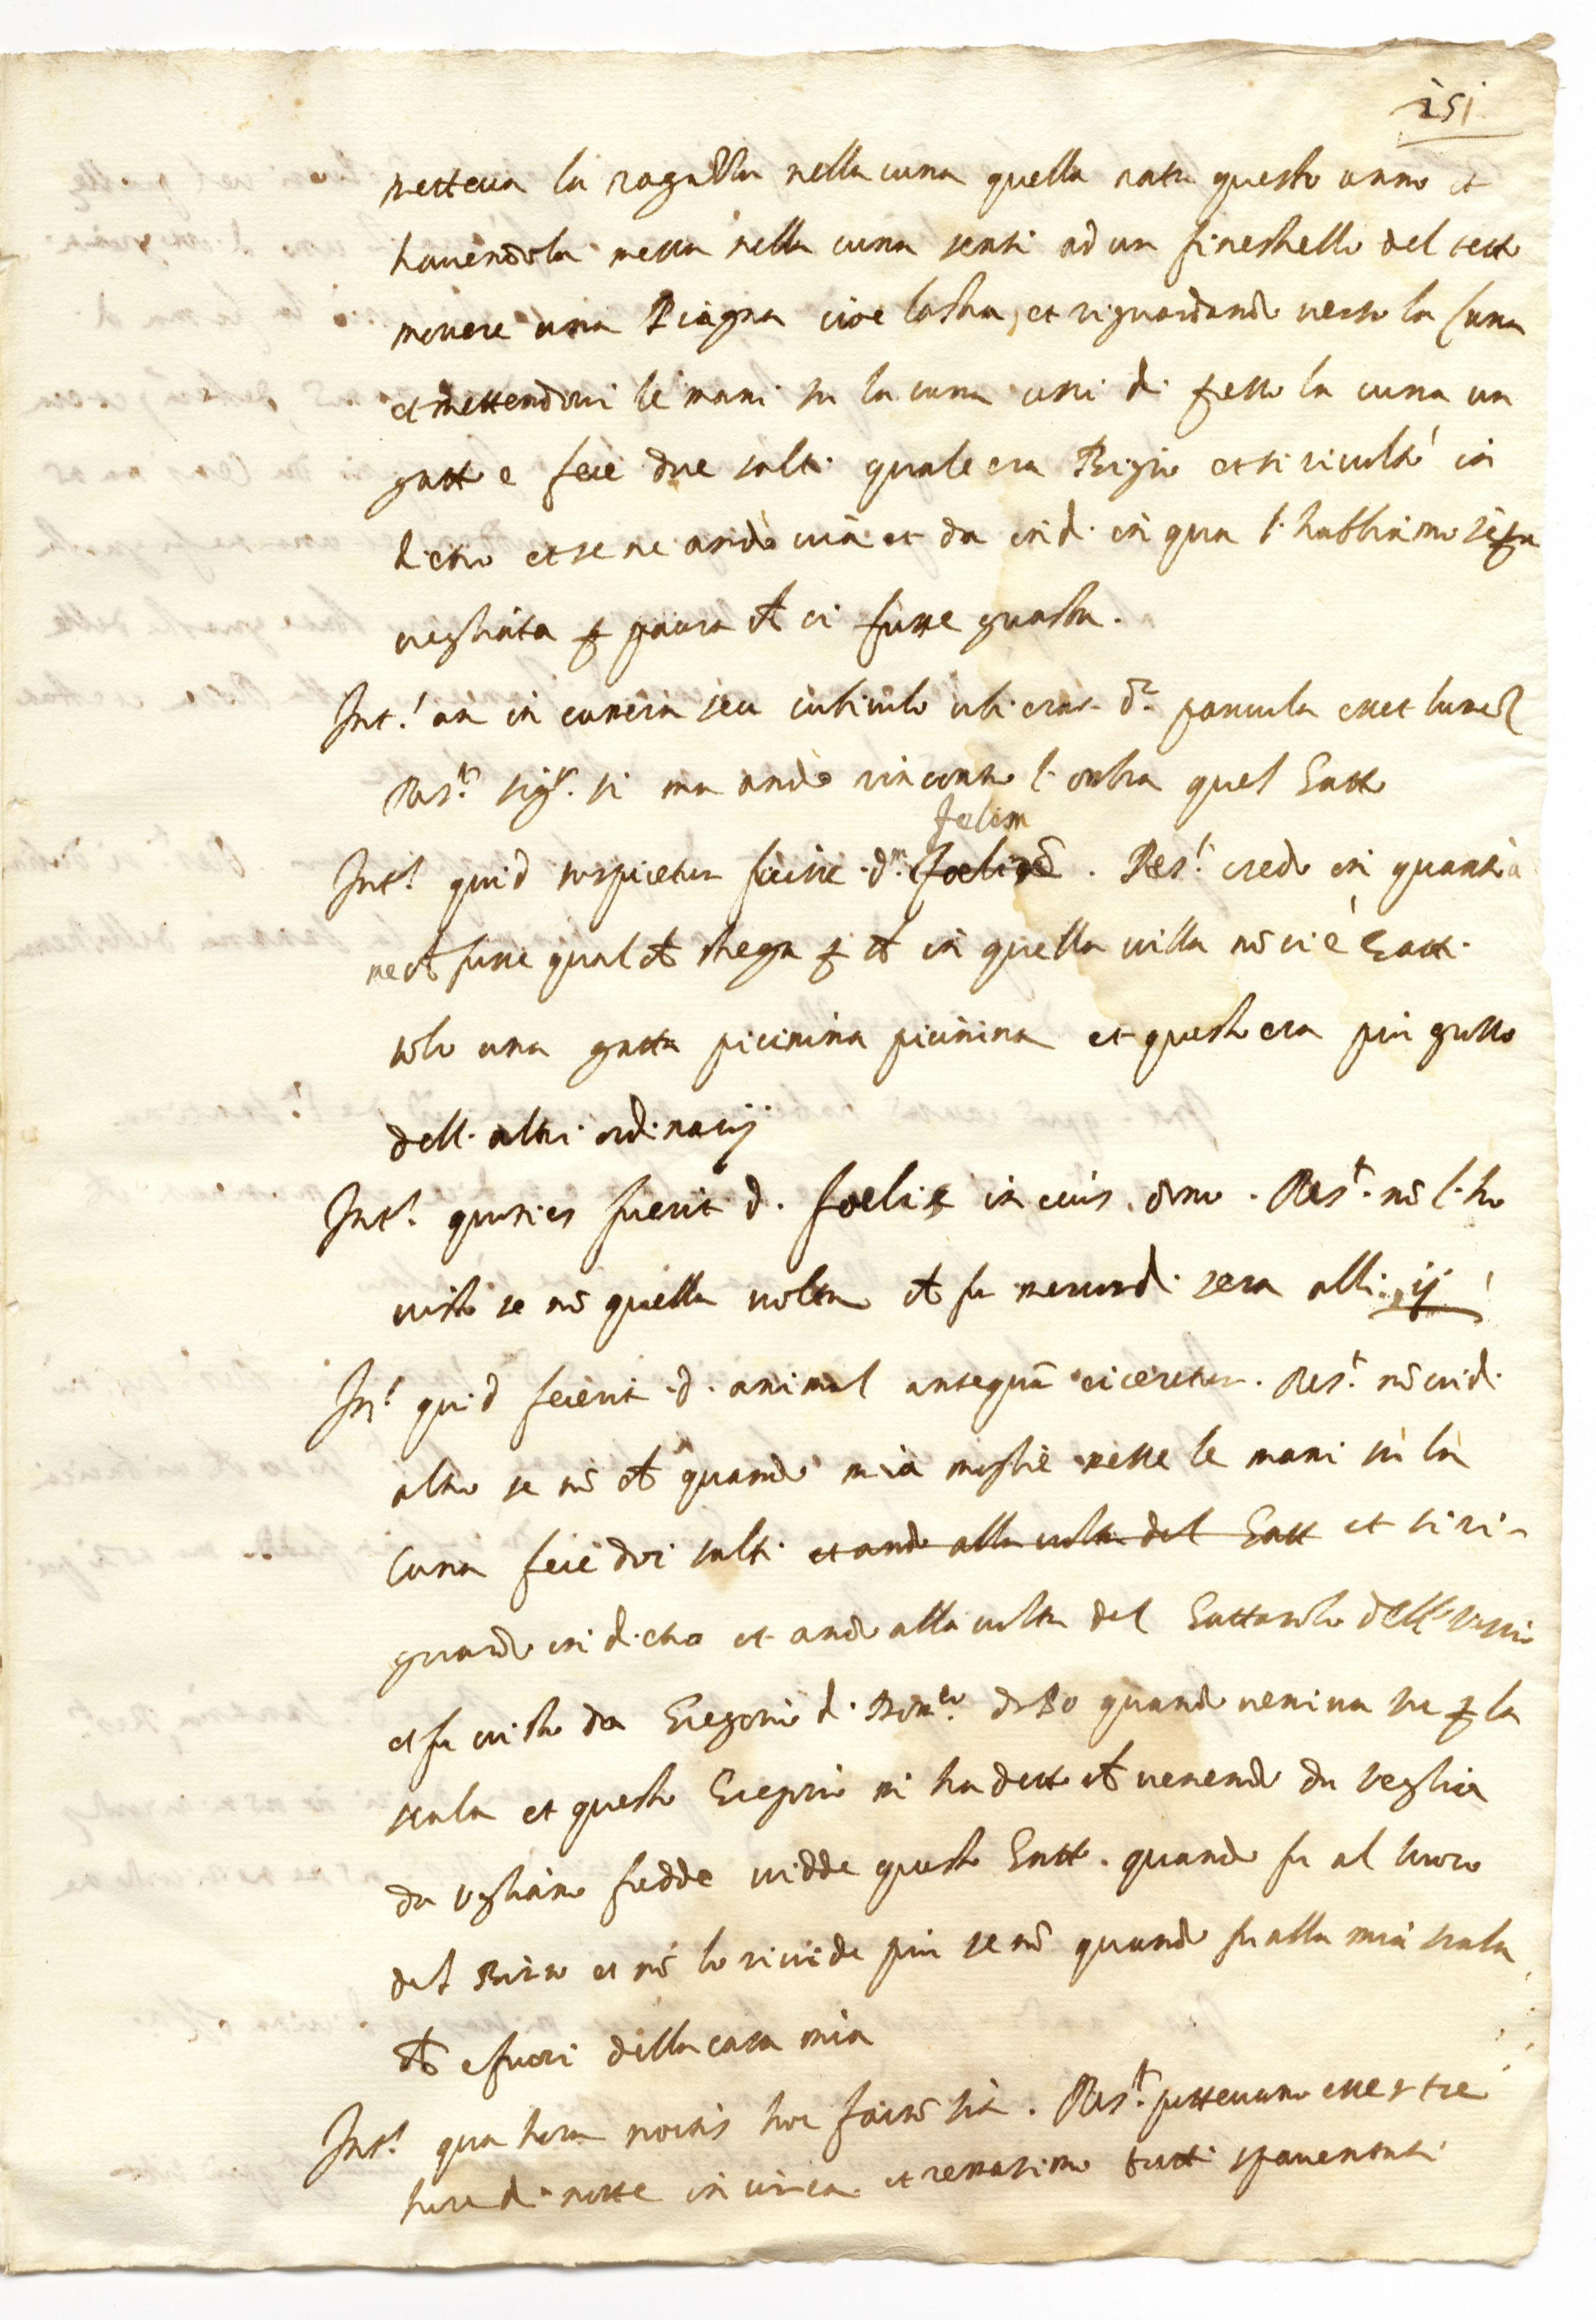 151
metteva la ragazza nella cuna quella nata questo anno et
havendola messa nella cuna sentì ad un finestrello del tetto
movere una Piagna cioè lastra, et riguardando verso la cuna
et mettendovi le mani su la cuna uscì di sotto la cuna un
gatto e fece due salti quale era Bigio et si rivoltò in
dietro et se ne andò via et da indi in qua l'habbiamo
vegliata p paura ch ci fusse guasta.
Int.t an in camera seu cubiculo ubi erat d.a parvula esset lumen
Res.t sig.r si ma andò rincontro l'ombra quel Gatto
felem
Int.t quid suspicetur fuisse d.m foelicē. Res.t credo in quanto a
me ch fusse qualch strega p ch in quella villa nō ci è Gatti
solo una gatta piccinina piccinina et questo era più grosso
dell'altri ordinarij
Int.t quoties fuerit d. foelix in eius domo. Res.t nō l'ho
visto se nō quella volta ch fu mercordi sera alli ij
Int.t quid fecerit d. animal antequā eiceretur. Res.t nō vidi
altro se nō ch quando mia moglie messe le mani su la
cuna fece doi salti et andò alla volta del Gatt et si ri-
guardò indietro et andò alla volta del Gattarolo dell'uscio
et fu visto da Gregorio di Bon.co quando veniva su p la
scala et questo Gregorio mi ha detto ch venendo da veglia
da vedde questo Gatto quando fu al
del et nō lo rivide più se nō quando fu alla mia scala
ch è fuori della casa mia
Int.t qua hora noctis hoc factū sit. Res.t pottevano essere tre
hore di notte in circa et remasimo tutti spaventati